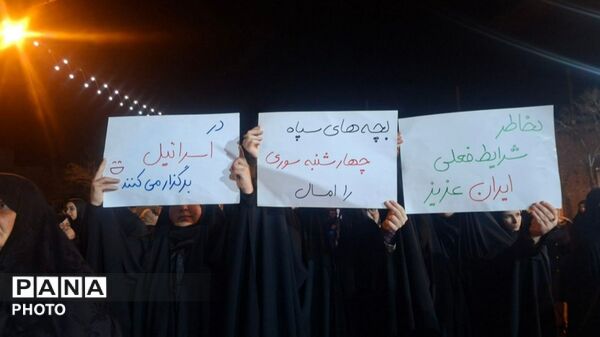 بخاطر
شرایط فعلی
ایران عزیز
بچه های سپاه
چهارشنبه سوری
را امسال
در
اسرائیل
برگزار می کنند
PANA
PHOTO